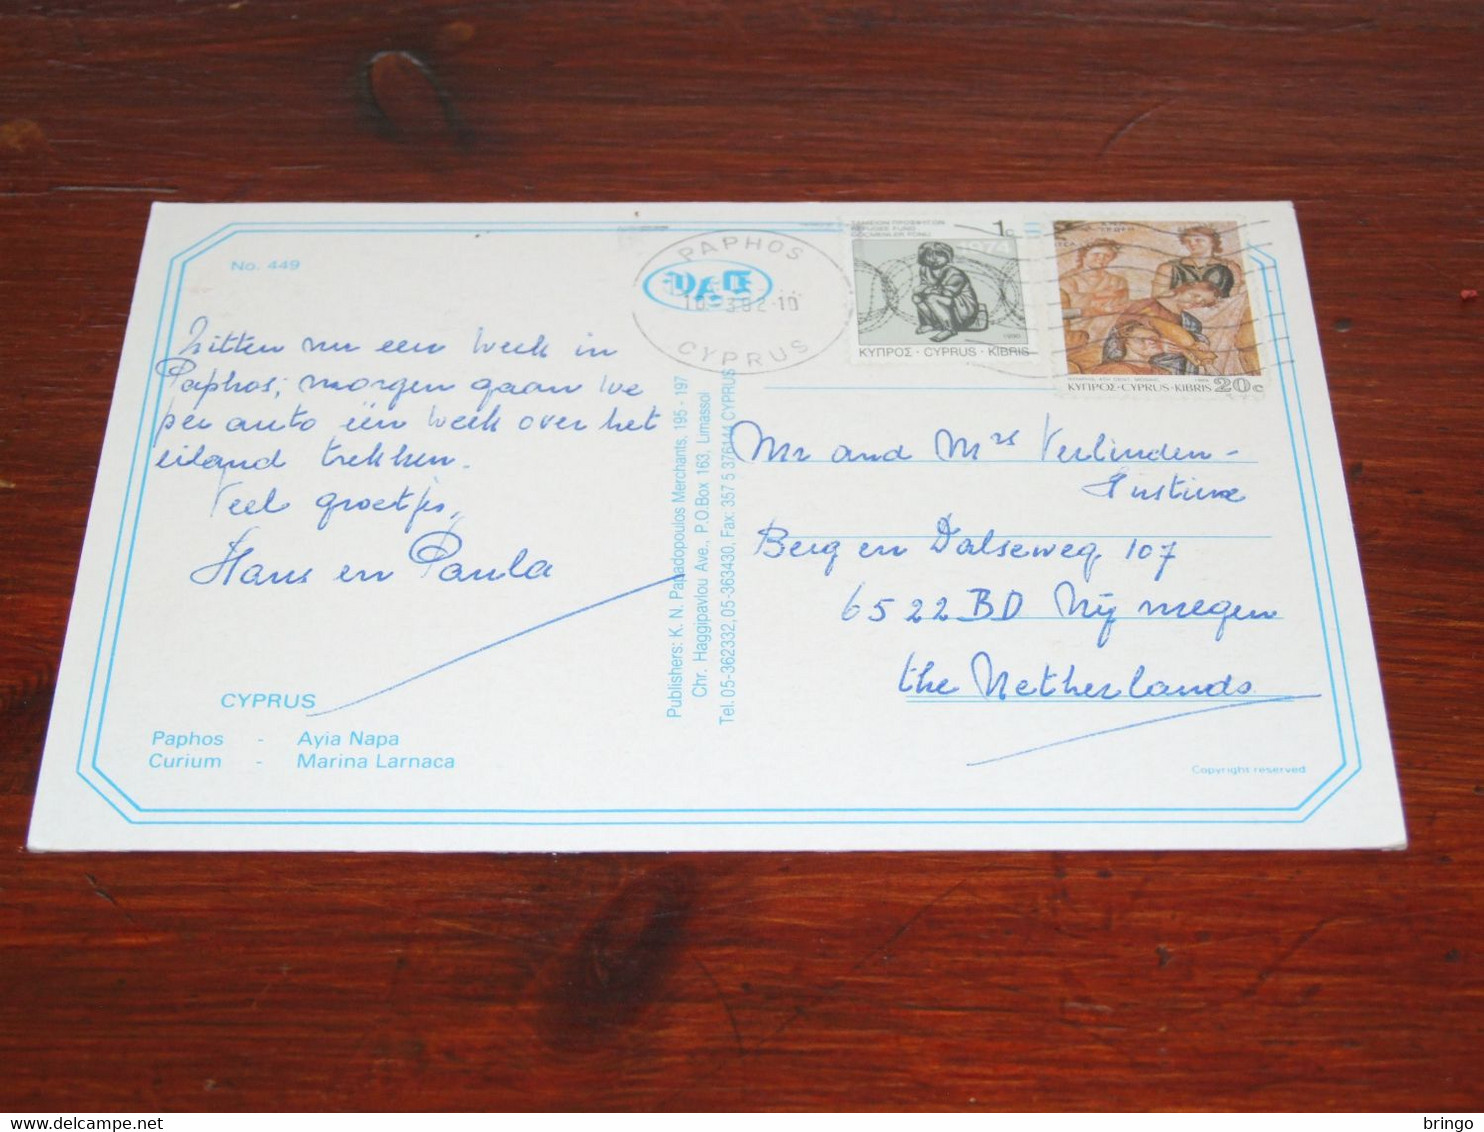 No. 449
Zitten nu een week in
Paphos, morgen gaan we
per auto één week over het
eiland trekken.
Veel groetjes,
Hans en Paula
CYPRUS
Paphos - Ayia Napa
Curium - Marina Larnaca
Publishers: K. N. Papadopoulos Merchants, 195 - 197
Chr. Haggipavlou Ave., P.O.Box 163, Limassol
Tel. 05-362332, 05-363430, Fax: 357 5 376144 CYPRUS
PAPHOS
CYPRUS
REFUGEE FUND
1c
1974
1990
ΚΥΠΡΟΣ · CYPRUS · KIBRIS
ΚΥΠΡΟΣ-CYPRUS-KIBRIS 20c
Mr and Mrs Verlinden-
Berg en Dalseweg 107
6522 BD Nijmegen
the Netherlands
Copyright reserved
bringo